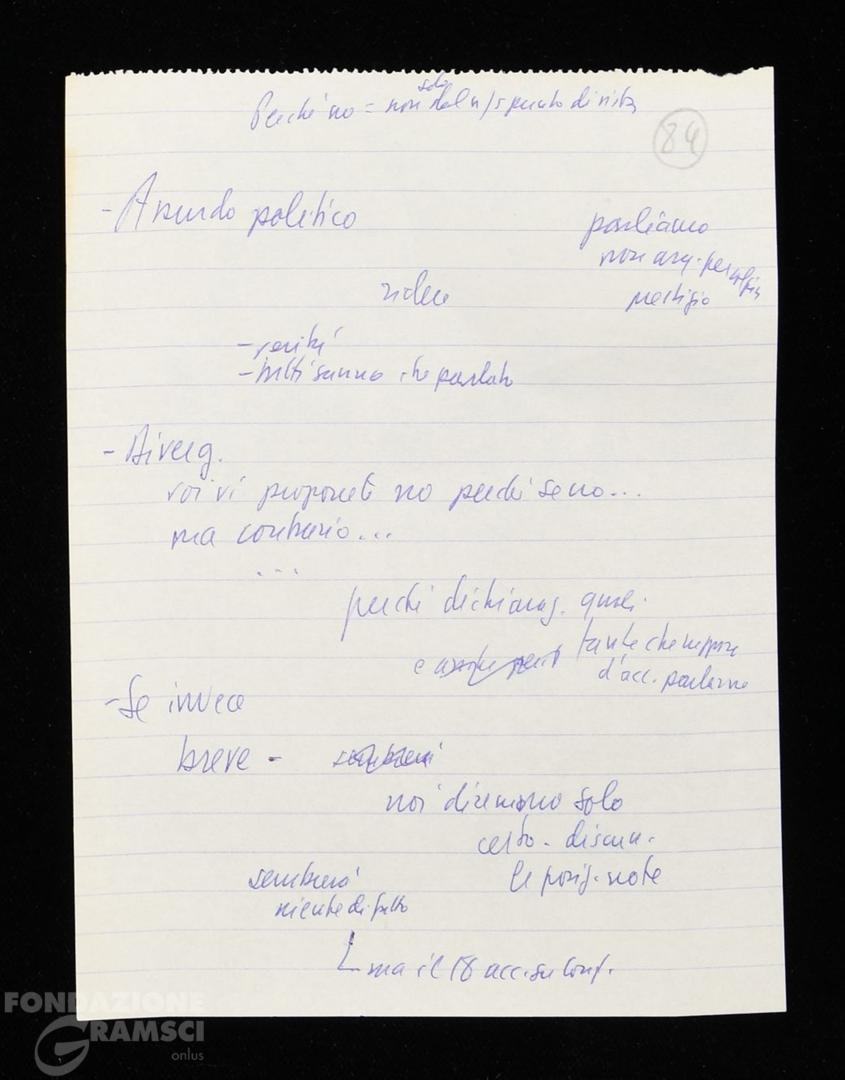 Perché no = non solo dal n/s punto di vista
84
- Assurdo politico
parliamo
non arg. per
prestigio
ridere
- verità
- tutti sanno che parlato
- Diverg.
voi vi proponete no perché se no...
ma contrario...
...
perché dichiaraz. quali
e
tante che neppure
d'acc. parlarne
- Se invece
breve -
noi diremmo solo
certo - discuss.
le posiz. note
sembrerà
niente di fatto
ma il 18 acc. su Conf.
FONDAZIONE
GRAMSCI
onlus